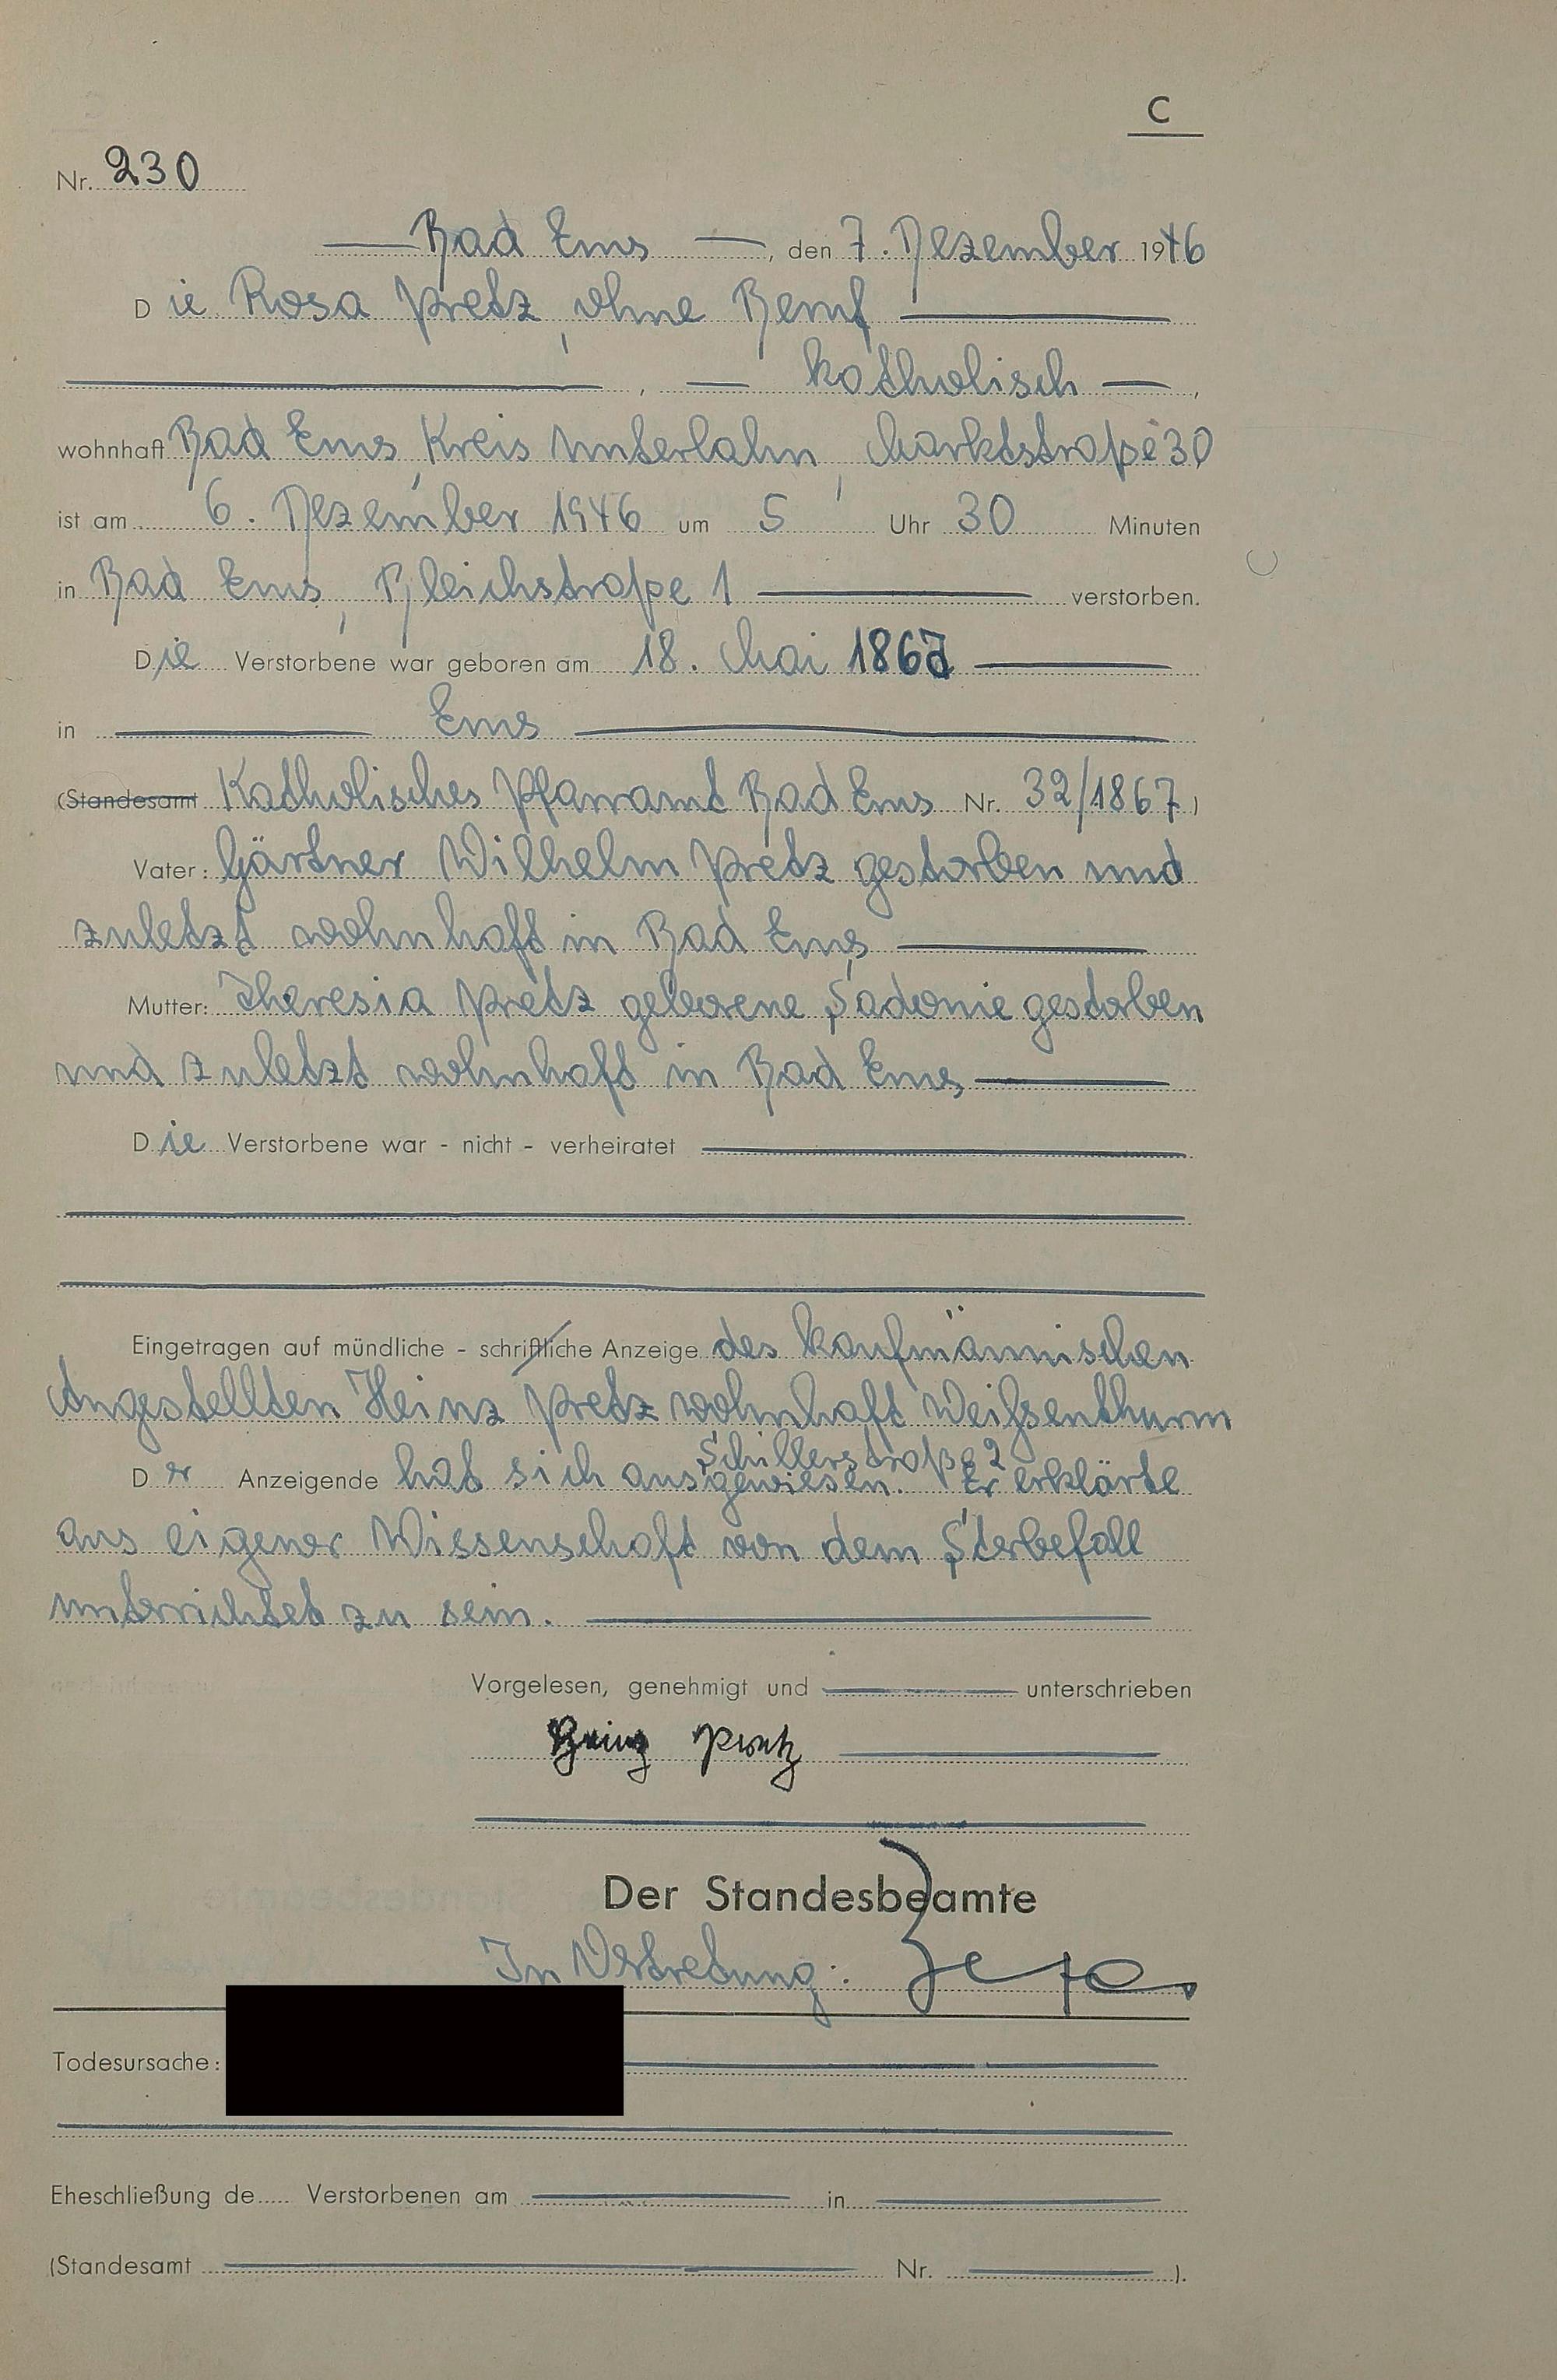 C
Nr. 230
Bad Ems, den 7. Dezember 1946
Die Rosa Pretz, ohne Beruf
, katholisch,
wohnhaft Bad Ems, Kreis Unterlahn, Marktstraße 30
ist am 6. Dezember 1946 um 5 Uhr 30 Minuten
in Bad Ems, Bleichstraße 1 verstorben.
Die Verstorbene war geboren am 18. Mai 1867
in Ems
(Standesamt Katholisches Pfarramt Bad Ems Nr. 32/1867)
Vater: Gärtner Wilhelm Pretz gestorben und
zuletzt wohnhaft in Bad Ems,
Mutter: Theresia Pretz geborene Sadonie gestorben
und zuletzt wohnhaft in Bad Ems
Die Verstorbene war - nicht - verheiratet
Eingetragen auf mündliche - schriftliche Anzeige des kaufmännischen
Angestellten Heinz Pretz wohnhaft Weißenthurm
Schillerstraße 2
Der Anzeigende hat sich ausgewiesen. Er erklärte
aus eigener Wissenschaft von dem Sterbefall
unterrichtet zu sein.
Vorgelesen, genehmigt und unterschrieben
Heinz Pretz
Der Standesbeamte
In Vertretung:
Todesursache:
Eheschließung de Verstorbenen am in
(Standesamt Nr. ).